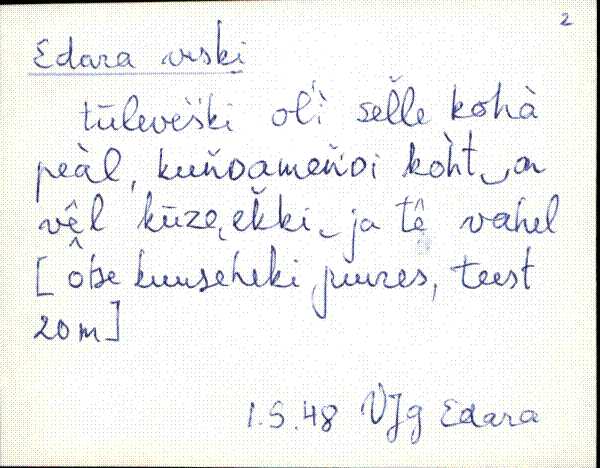 2
Edara veski
tūleveški oľì sell̆e kohà
peàl, kun̆damen̆di kòht‿on
vêl kūze̮ek̆ki‿ja tê vahel
[ôtse kuuseheki juures, teest
20m]
1.5.48 VJg Edara